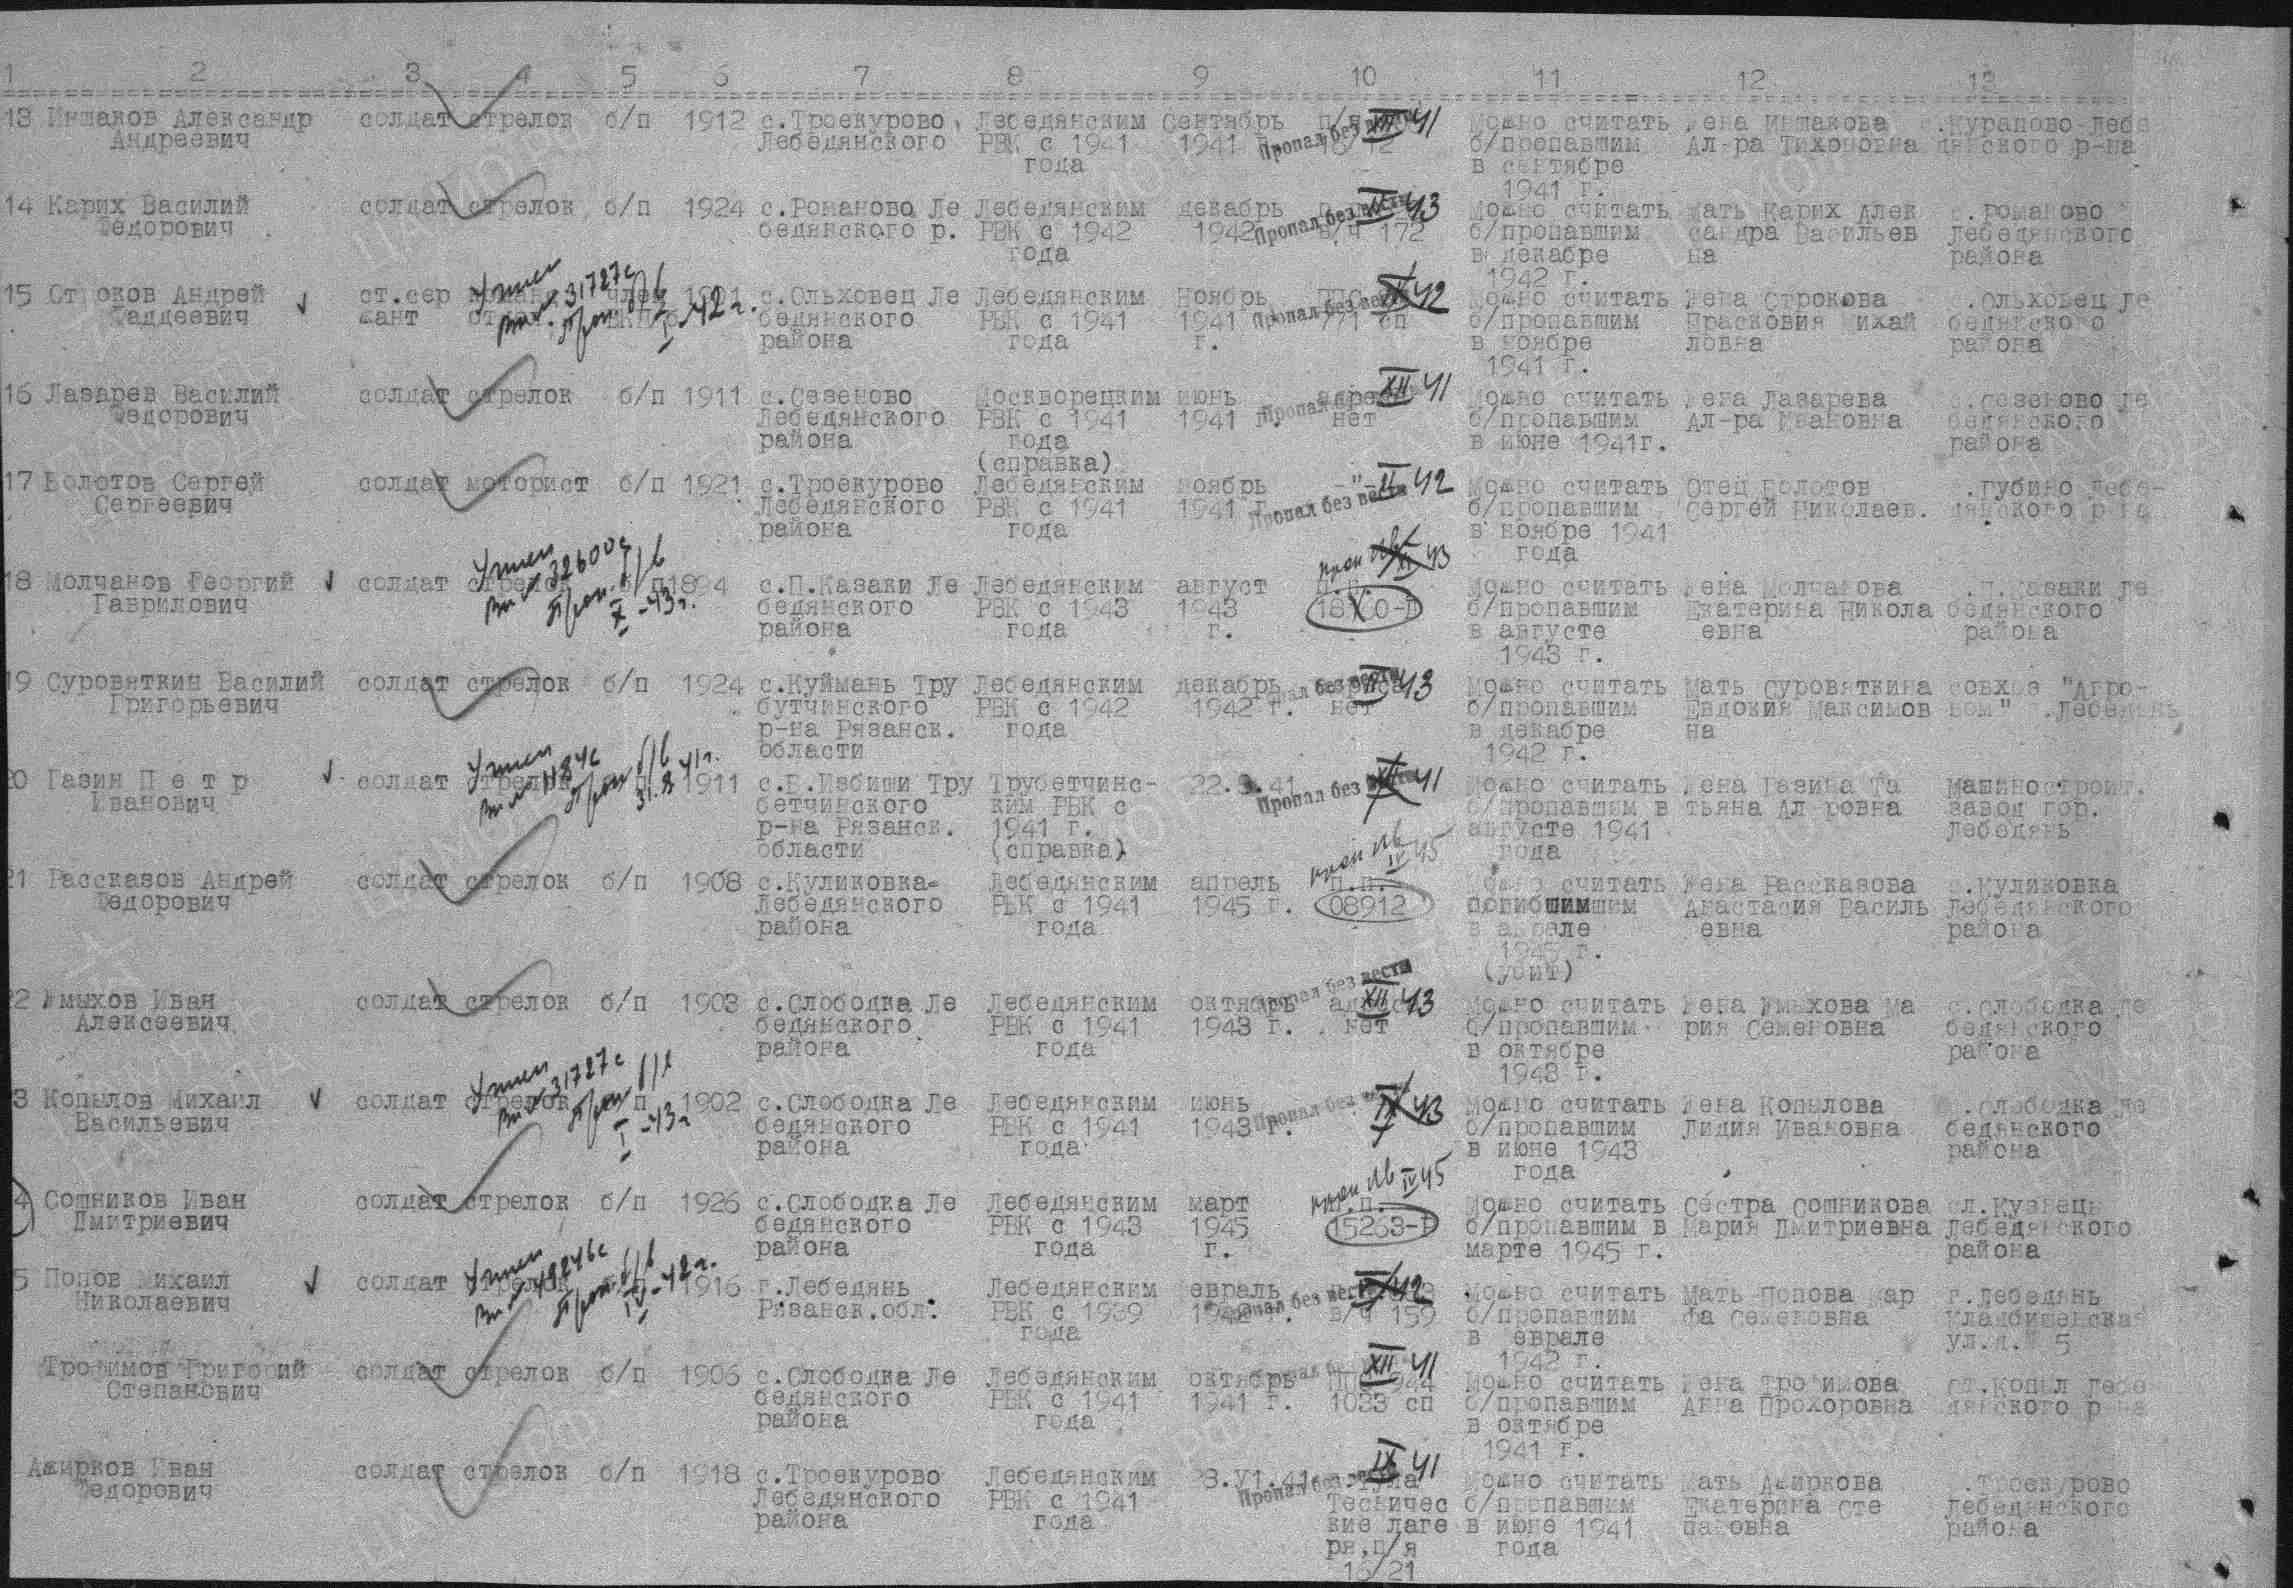 1 2 3 4 5 6 7 8 9 10 11 12 13
13 Иншаков Александр солдат стрелок б/п 1912 с.Троекурово, Лебедянским Сентябрь п/я XII 41 Можно считать Жена Иншакова с.Курапово Лебе
Андреевич Лебедянского РВК с 1941 1941 г. Пропал без вести б/пропавшим Ал-ра Тихоновна дянского р-на
года в сентябре
1941 г.
14 Карих Василий солдат стрелок б/п 1924 с.Романово Ле Лебедянским декабрь 43 Можно считать Мать Карих Алек с.Романово
Федорович бедянского р. РВК с 1942 1942 Пропал без вести в/ч 172 б/пропавшим сандра Васильев Лебедянского
года в декабре на района
1942 г.
15 Строков Андрей ст.сер 1911 с.Ольховец Ле Лебедянским Ноябрь 42 Можно считать Жена Строкова с.Ольховец Ле
Фаддеевич жант бедянского РВК с 1941 1941 Пропал без вести 771 сп б/пропавшим Прасковия Михай бедянского
Учтен
Вх.№ 31727с
Проп. б/в
I-42 г.
района года г. в ноябре ловна района
1941 г.
16 Лазарев Василий солдат стрелок б/п 1911 с.Сезеново Москворецким июнь адреса XII 41 Можно считать Жена Лазарева с.Сезеново Ле
Федорович Лебедянского РВК с 1941 1941 г. Пропал нет б/пропавшим Ал-ра Ивановна бедянского
района года в июне 1941г. района
(справка)
17 Болотов Сергей солдат моторист б/п 1921 с.Троекурово Лебедянским ноябрь -"- II 42 Можно считать Отец Болотов с.Губино Лебе-
Сергеевич Лебедянского РВК с 1941 1941 г. Пропал без вести б/пропавшим Сергей Николаев. дянского р-на
района года в ноябре 1941
года
Учтен
Вх.№ 32600с
Проп. б/в
X-43 г.
проп б/в XI 43
18 Молчанов Георгий солдат стрелок б/п 1894 с.П.Казаки Ле Лебедянским август п.п. Можно считать Жена Молчанова с.П.Казаки Ле
Гаврилович бедянского РВК с 1943 1943 б/пропавшим Екатерина Никола бедянского
района года г. в августе евна района
1943 г.
19 Суровяткин Василий солдат стрелок б/п 1924 с.Куймань Тру Лебедянским декабрь адреса 43 Можно считать Мать Суровяткина совхоз "Агро-
Григорьевич бутчинского РВК с 1942 1942 г. нет б/пропавшим Евдокия Максимов ном" г.Лебедянь
р-на Рязанск. года в декабре на
области 1942 г.
Учтен
Проп б/в
31.8 41г.
20 Газин П е т р солдат стрелок б/п 1911 с.Б.Избищи Тру Трубетчинс- 22.8.41 XII 41 Можно считать Жена Газина Та Машиностроит.
Иванович бетчинского ким РВК с Пропал без вести б/пропавшим в тьяна Ал-ровна завод гор.
р-на Рязанск. 1941 г. августе 1941 Лебедянь
области (справка) года
проп б/в IV 45
21 Рассказов Андрей солдат стрелок б/п 1908 с.Куликовка- Лебедянским апрель п.п. Можно считать Жена Рассказова с.Куликовка
Федорович Лебедянского РВК с 1941 1945 г. 08912 погибшим Анастасия Василь Лебедянского
района года в апреле евна района
1945 г.
(убит)
22 Жмыхов Иван солдат стрелок б/п 1903 с.Слободка Ле Лебедянским октябрь адреса XII 43 Можно считать Жена Жмыхова Ма с.Слободка Ле
Алексеевич бедянского РВК с 1941 1943 г. Пропал без вести нет б/пропавшим рия Семеновна бедянского
района года в октябре района
1943 г.
Учтен
Вх.№ 31727с
Проп б/в
I-43 г
23 Копылов Михаил солдат стрелок б/п 1902 с.Слободка Ле Лебедянским июнь 43 Можно считать Жена Копылова с.Слободка Ле
Васильевич бедянского РВК с 1941 1943 г. Пропал без б/пропавшим Лидия Ивановна бедянского
района года в июне 1943 района
года
проп б/в IV 45
24 Сошников Иван солдат стрелок б/п 1926 с.Слободка Ле Лебедянским март п.п. Можно считать Сестра Сошникова сл.Кузнецы
Дмитриевич бедянского РВК с 1943 1945 15263-Р б/пропавшим в Мария Дмитриевна Лебедянского
района года г. марте 1945 г. района
Учтен
Проп. б/в
IV-42 г.
25 Попов Михаил солдат стрелок 1916 г.Лебедянь Лебедянским февраль 42 Можно считать Мать Попова Мар г.Лебедянь
Николаевич Рязанск.обл. РВК с 1939 1942 г. Пропал без вести в/ч 159 б/пропавшим фа Семеновна Кладбищенская
года в феврале ул.д. 5
1942 г.
Трофимов Григорий солдат стрелок б/п 1906 с.Слободка Ле Лебедянским октябрь XII 41 Можно считать Жена Трофимова ст.Копыл Лебе
Степанович бедянского РВК с 1941 1941 г. 1033 сп б/пропавшим Анна Прохоровна дянского р-на
района года в октябре
1941 г.
Ажирков Иван солдат стрелок б/п 1918 с.Троекурово Лебедянским 23.У1.41 г.Тула IX 41 Можно считать Мать Ажиркова с.Троекурово
Федорович Лебедянского РВК с 1941 Пропал без вести Тесничес б/пропавшим Екатерина Сте Лебедянского
района года кие лаге в июне 1941 пановна района
ря,п/я года
16/21